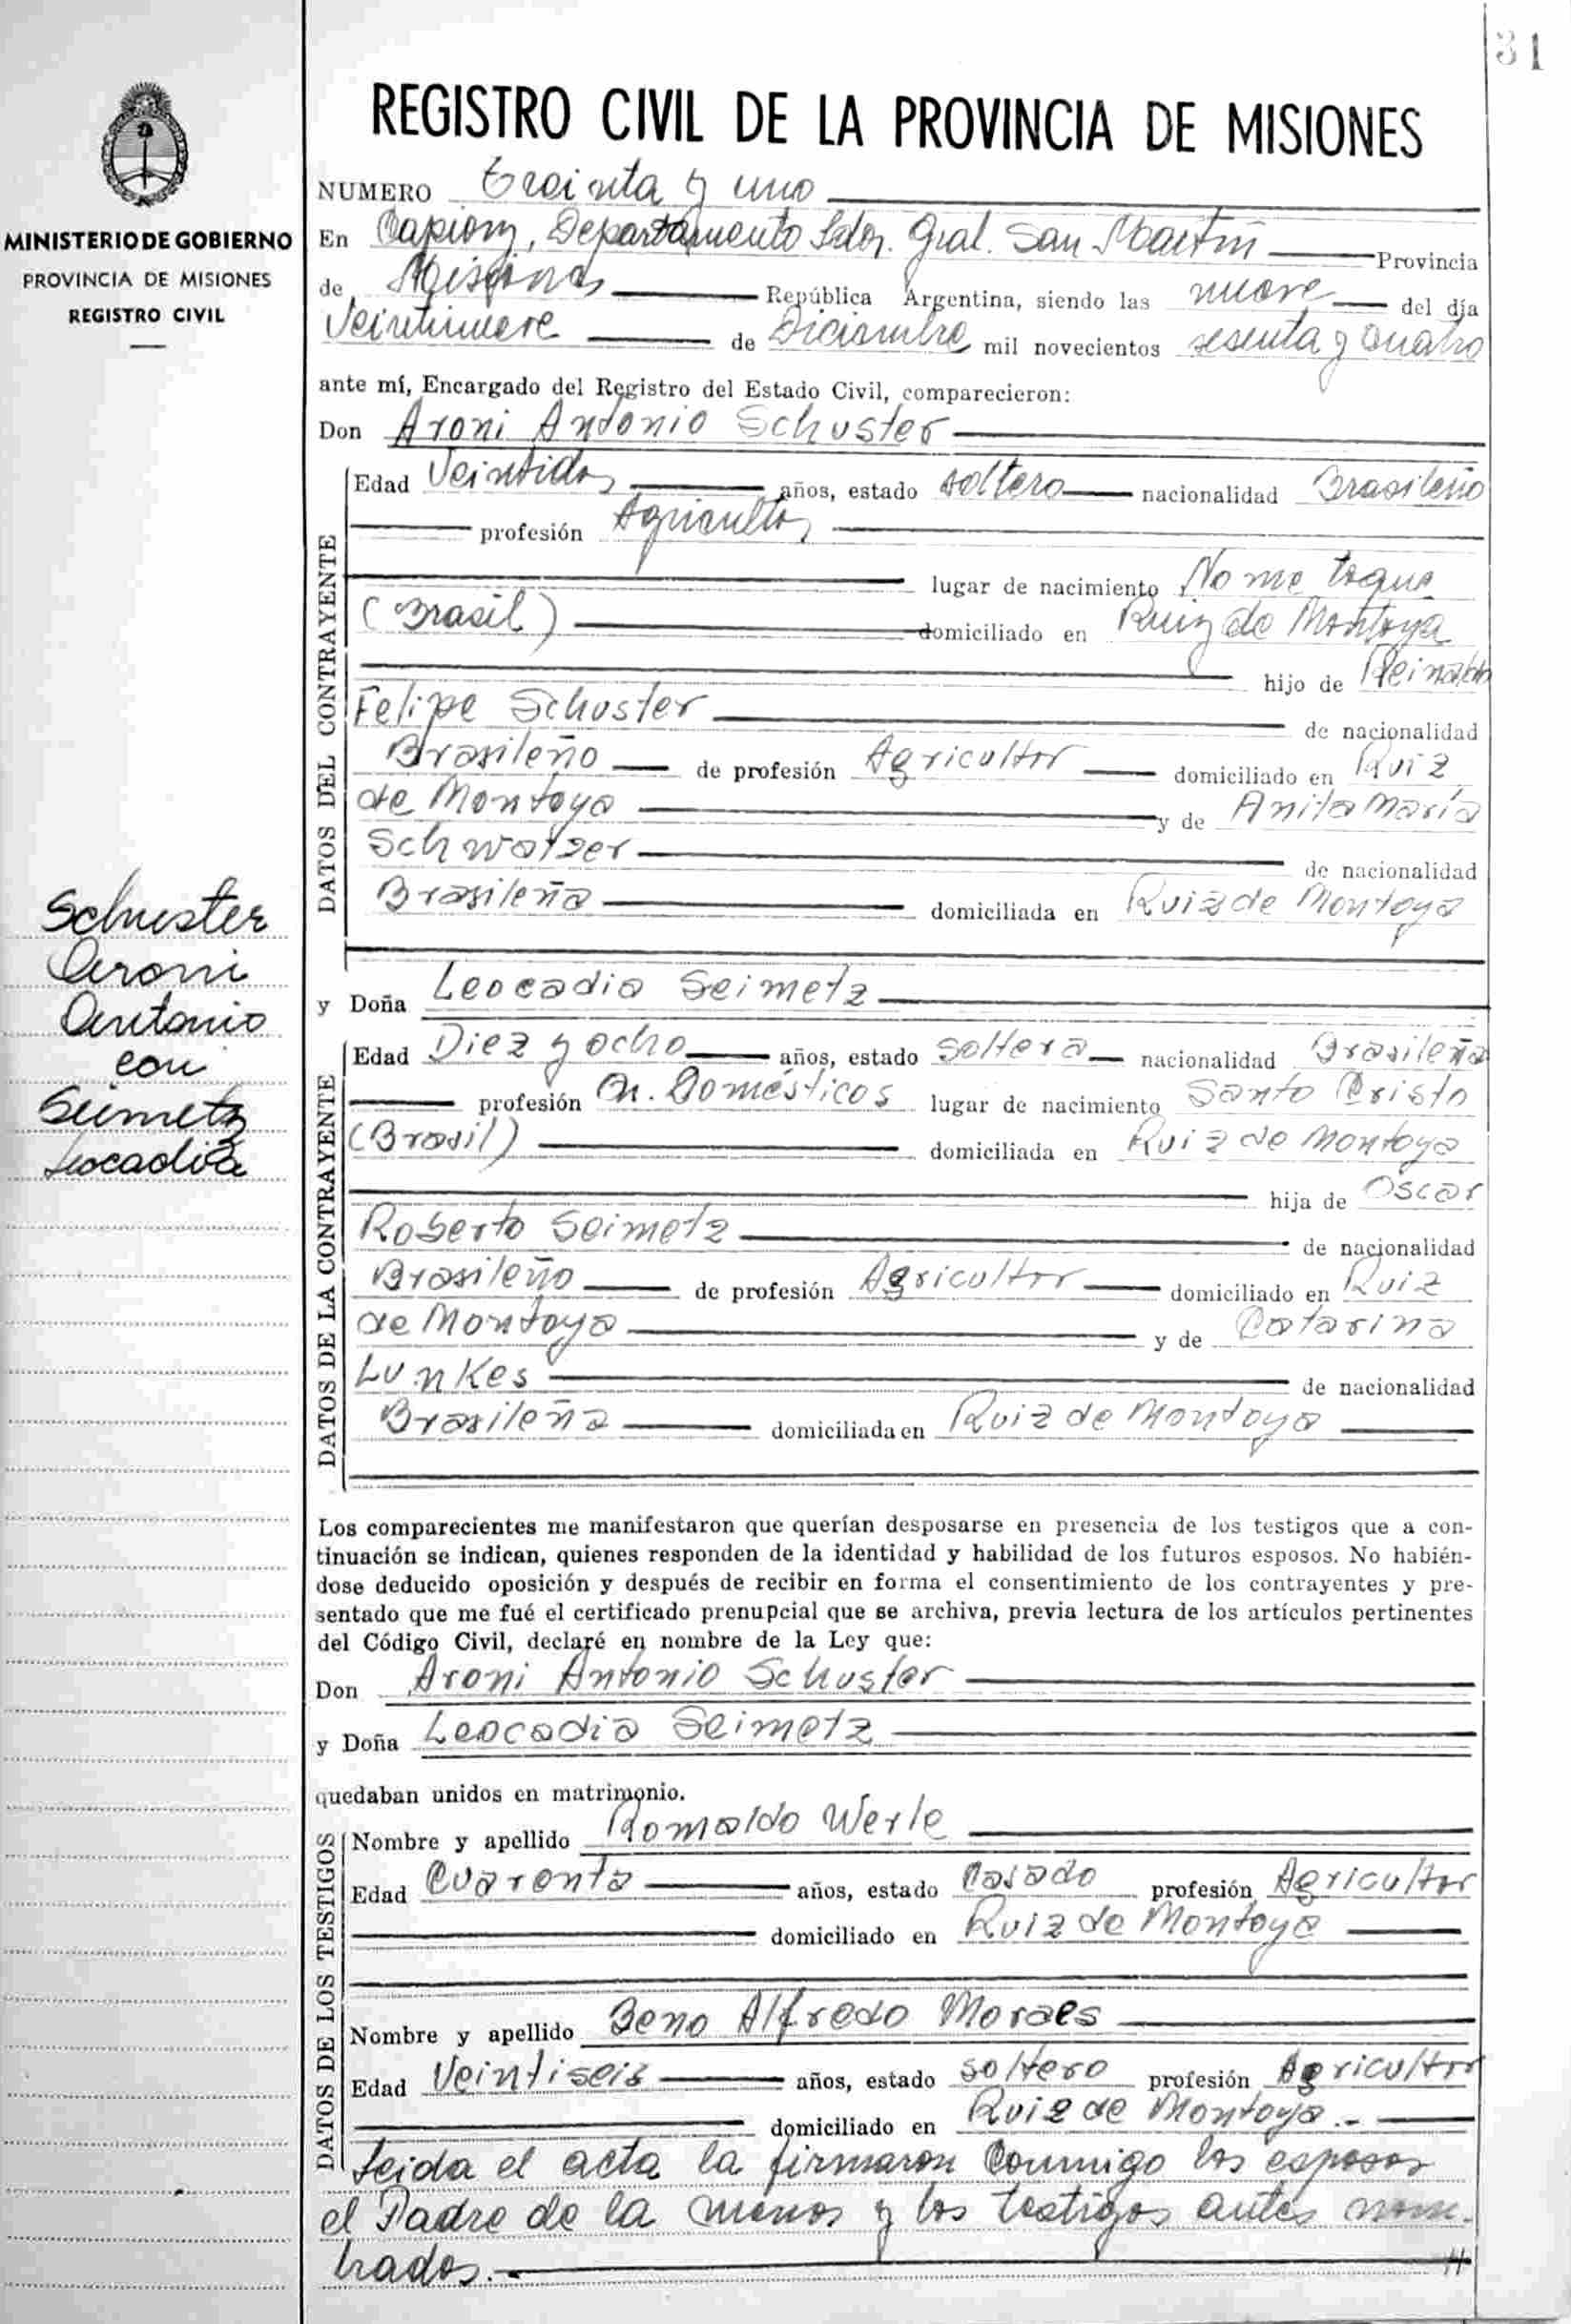 31
MINISTERIO DE GOBIERNO
PROVINCIA DE MISIONES
REGISTRO CIVIL
Schuster
Aroni
Antonio
con
Seimetz
Leocadia
REGISTRO CIVIL DE LA PROVINCIA DE MISIONES
NUMERO Treinta y uno
En Capiovy, Departamento Ldor. Gral. San Martin Provincia
de Misiones República Argentina, siendo las nueve del día
Veintinueve de Diciembre mil novecientos sesenta y cuatro
ante mí, Encargado del Registro del Estado Civil, comparecieron:
Don Aroni Antonio Schuster
DATOS DEL CONTRAYENTE
Edad Veintidos años, estado soltero nacionalidad Brasileño
profesión Agricultor
lugar de nacimiento No me toque
(Brasil) domiciliado en Ruiz de Montoya
hijo de Reinaldo
Felipe Schuster de nacionalidad
Brasileño de profesión Agricultor domiciliado en Ruiz
de Montoya y de Anita María
Schwatzer de nacionalidad
Brasileña domiciliada en Ruiz de Montoya
y Doña Leocadia Seimetz
DATOS DE LA CONTRAYENTE
Edad Diez y ocho años, estado soltera nacionalidad Brasileña
profesión Q. Domésticos lugar de nacimiento Santo Cristo
(Brasil) domiciliada en Ruiz de Montoya
hija de Oscar
Roberto Seimetz de nacionalidad
Brasileño de profesión Agricultor domiciliado en Ruiz
de Montoya y de Catarina
Lunkes de nacionalidad
Brasileña domiciliada en Ruiz de Montoya
Los comparecientes me manifestaron que querían desposarse en presencia de los testigos que a con-
tinuación se indican, quienes responden de la identidad y habilidad de los futuros esposos. No habién-
dose deducido oposición y después de recibir en forma el consentimiento de los contrayentes y pre-
sentado que me fué el certificado prenupcial que se archiva, previa lectura de los artículos pertinentes
del Código Civil, declaré en nombre de la Ley que:
Don Aroni Antonio Schuster
y Doña Leocadia Seimetz
quedaban unidos en matrimonio.
DATOS DE LOS TESTIGOS
Nombre y apellido Romaldo Werle
Edad Cuarenta años, estado Casado profesión Agricultor
domiciliado en Ruiz de Montoya
Nombre y apellido Beno Alfredo Moraes
Edad Veintiseis años, estado soltero profesión Agricultor
domiciliado en Ruiz de Montoya.-
Leida el acta la firmaron Conmigo los esposos
el Padre de la menor y los testigos antes nom-
brados.-